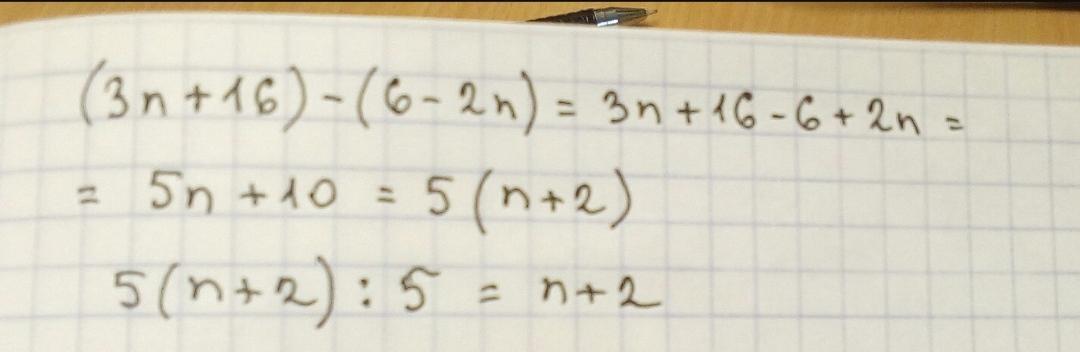 (3n+16)-(6-2n)=3n+16-6+2n=
= 5n+10 = 5(n+2)
5(n+2):5 = n+2